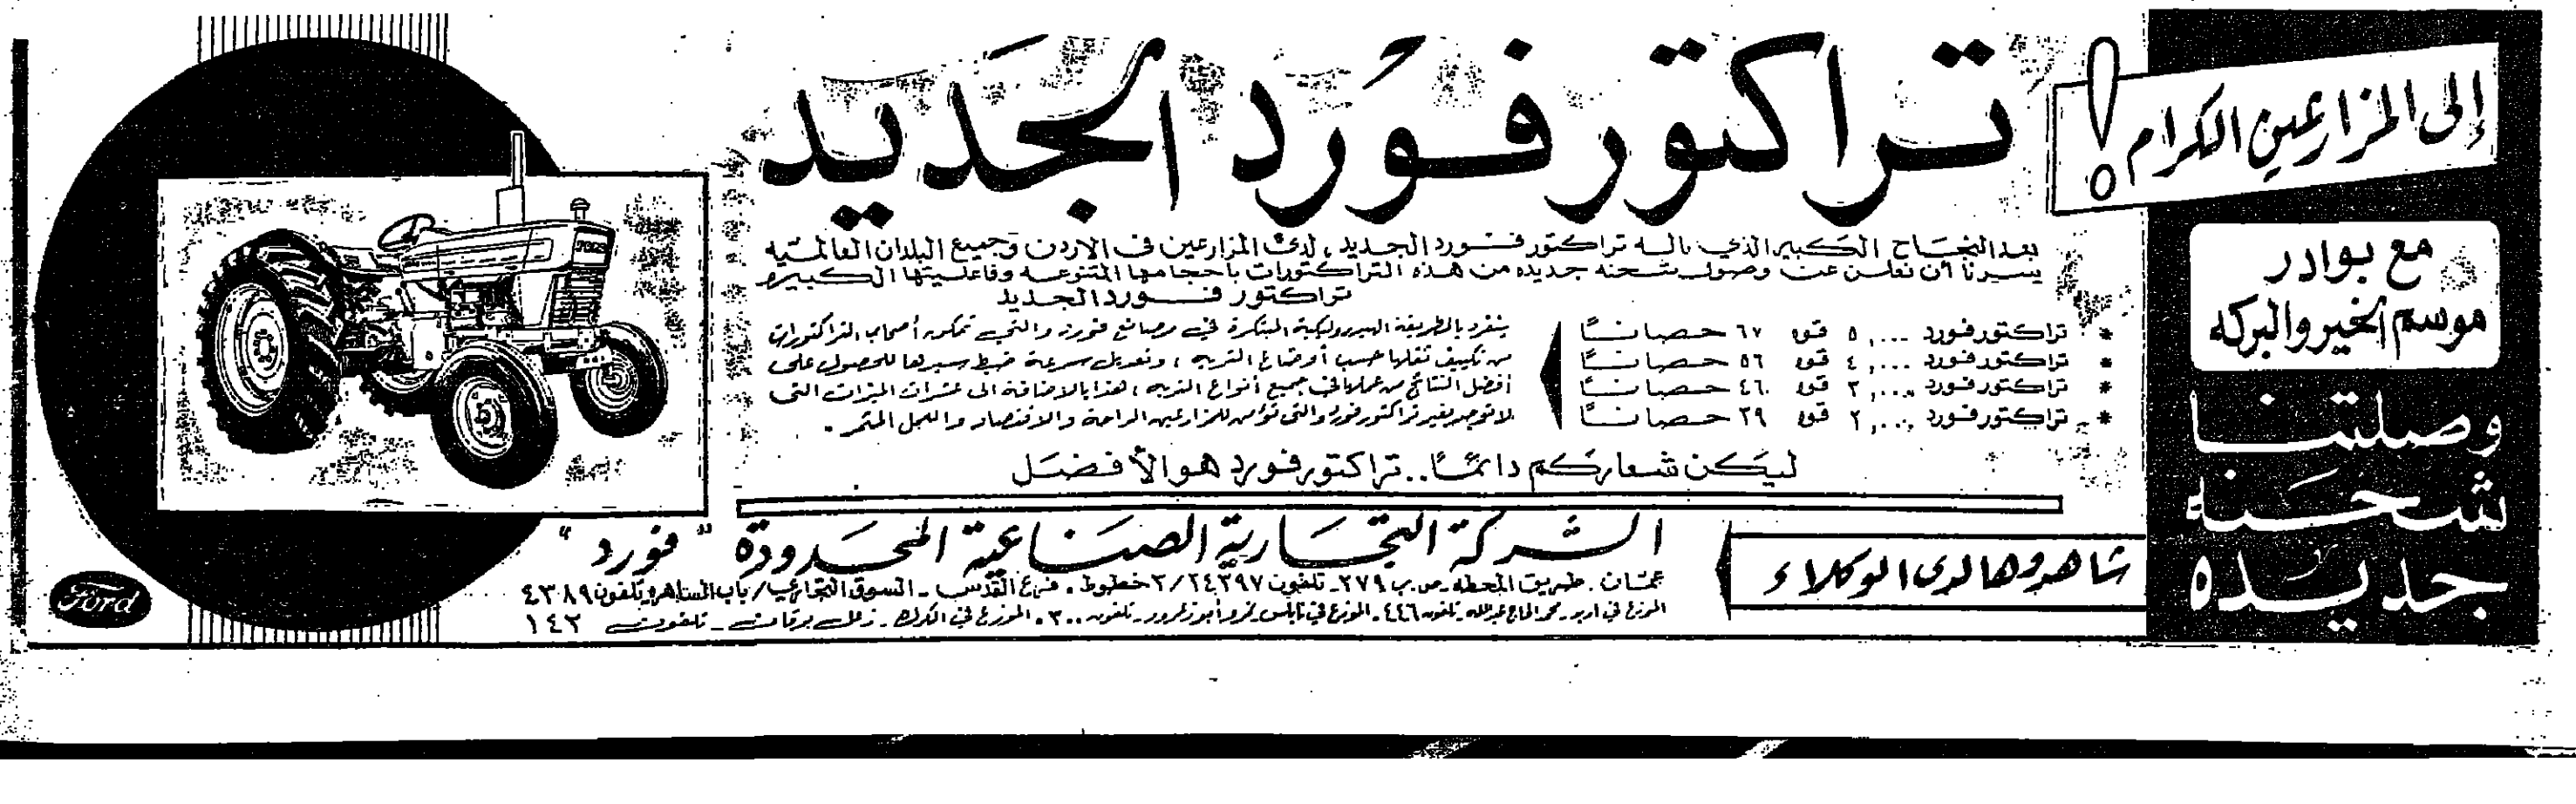 إلى المزارعين الكرام !
مع بوادر
موسم الخير والبركه
وصلتنا
شحنه
جديده
تراكتور فورد الجديد
بعد النجاح الكبير الذي ناله تراكتور فورد الجديد ، لدى المزارعين في الاردن وجميع البلدان العالمية
يسرنا أن نعلن عن وصول شحنه جديده من هذه التراكتورات بأحجامها المتنوعه وفاعليتها الكبيره
تراكتور فورد الجديد
* تراكتور فورد ٥,٠٠٠ قوه ٦٧ حصاناً
* تراكتور فورد ٤,٠٠٠ قوه ٥٦ حصاناً
* تراكتور فورد ٣,٠٠٠ قوه ٤٦ حصاناً
* تراكتور فورد ٢,٠٠٠ قوه ٣٩ حصاناً
ينفرد بالطريقة الهيدروليكية المبتكرة في مصانع فورد والتي تمكن أصحاب التراكتورات
من تكييف ثقلها حسب أوضاع التربه ، وتعديل سرعة ضبط سيرها للحصول على
أفضل النتائج من عملها في جميع أنواع التربه ، هذا بالاضافة الى عشرات الميزات التي
لا توجد بغير تراكتور فورد والتي تؤمن للمزارعين الراحة والاقتصاد والعمل المثمر .
ليكن شعاركم دائماً .. تراكتور فورد هو الأفضل
شاهدوها لدى الوكلاء
الشركة التجارية الصناعية المحدودة " فورد "
عمان . طريق المحطه - ص.ب ٢٧٩ - تلفون ٢٤٢٩٧/٣ خطوط . فرع القدس - السوق التجاري / باب الساهره تلفون ٤٣٨٩
الموزع في اربد - محمد الحاج عبدالله - تلفون ٤٤٦ . الموزع في نابلس - تلفون ٣٠٠ . الموزع في الكرك - زعل برقان - تلفون ١٤٢
Ford